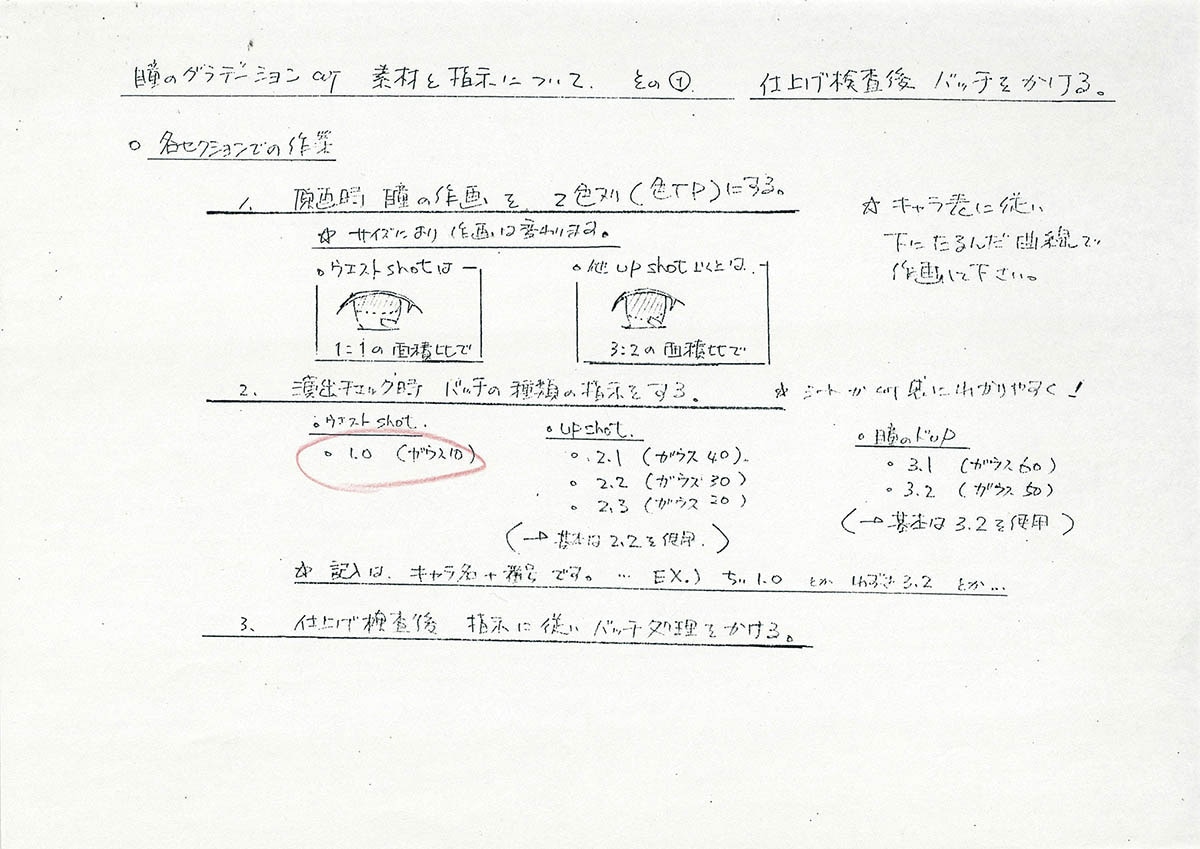 瞳のグラデーションcut 素材と指示について. その①. 仕上げ検査後 バッチをかける。
○ 各セクションでの作業
1. 原画時 瞳の作画を、2色ヌリ(色TP)にする。
☆ サイズにより 作画は変わります。
☆ キャラ表に従い
下にたるんだ曲線で
作画して下さい。
○ウエストshotは
1:1の面積比で
○他 up shot などは.
3:2の面積比で
2. 演出チェック時 バッチの種類の指示をする。 ☆ シートか cut 袋にわかりやすく!
○ウエスト shot.
○ 1.0 (ガウス10)
○ up shot.
○ 2.1 (ガウス40).
○ 2.2 (ガウス30)
○ 2.3 (ガウス20)
(→ 基本は2.2を使用.)
○ 瞳のドup
○ 3.1 (ガウス60)
○ 3.2 (ガウス50)
(→ 基本は3.2を使用)
☆ 記入は、キャラ名+番号です。… EX.) 1.0 とか 3.2 とか…
3. 仕上げ検査後 指示に従い バッチ処理をかける。